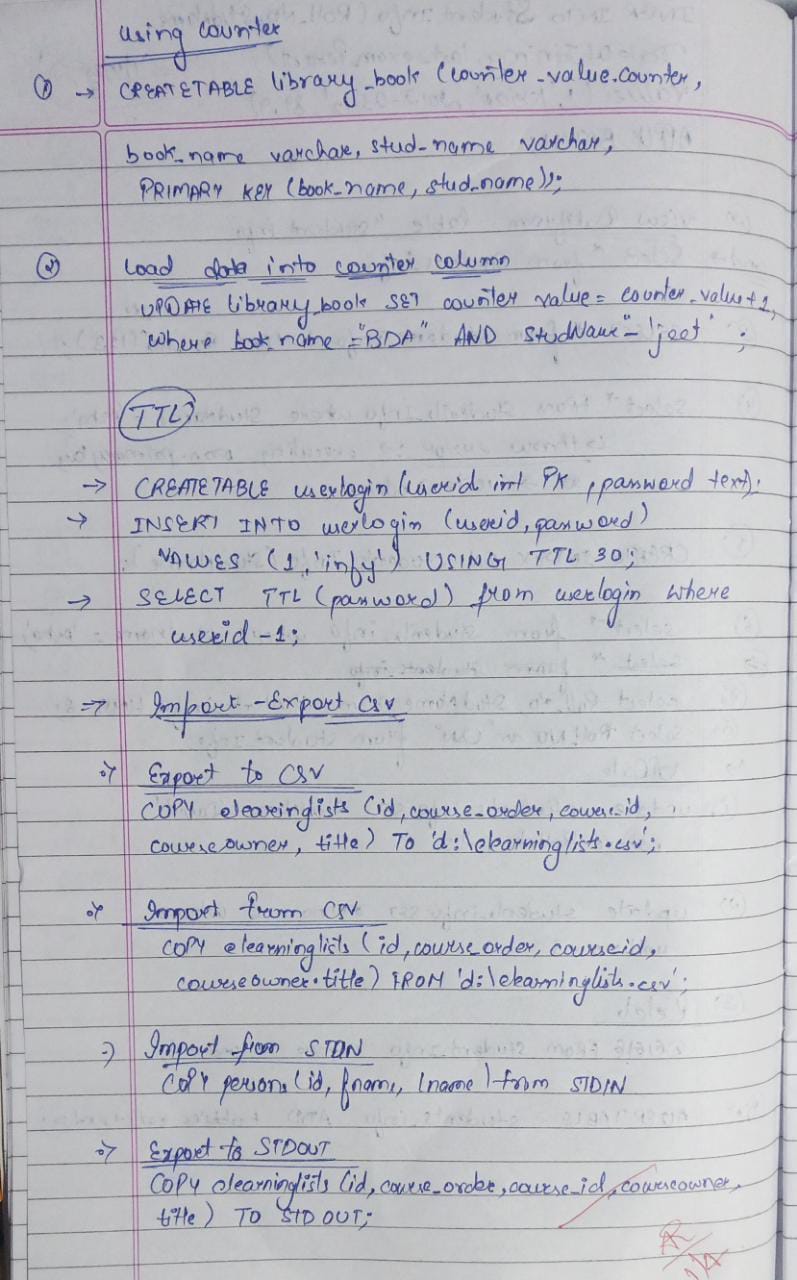 using counter
① → CREATETABLE library_book (counter_value.counter,
book_name varchar, stud_name varchar,
PRIMARY KEY (book_name, stud_name));
② Load data into counter column
UPDATE library_book SET counter value = counter_value+1,
where book_name = "BDA" AND StudName = 'jeet' ;
TTL
→ CREATETABLE userlogin (userid int PK, password text);
→ INSERT INTO userlogin (userid, password)
VALUES (1, 'infy') USING TTL 30;
→ SELECT TTL (password) from userlogin where
userid-1;
⇒ Import - Export CSV
Export to CSV
COPY elearinglists (id, course_order, courseid,
courseowner, title) TO 'd:\elearninglists.csv';
Import from CSV
COPY elearninglists (id, course_order, courseid,
courseowner.title) FROM 'd:\elearninglists.csv';
Import from STDN
COPY persons (id, fname, lname) from STDIN
Export to STDOUT
COPY elearninglists (id, course_order, course_id, courseowner,
title) TO STD OUT;